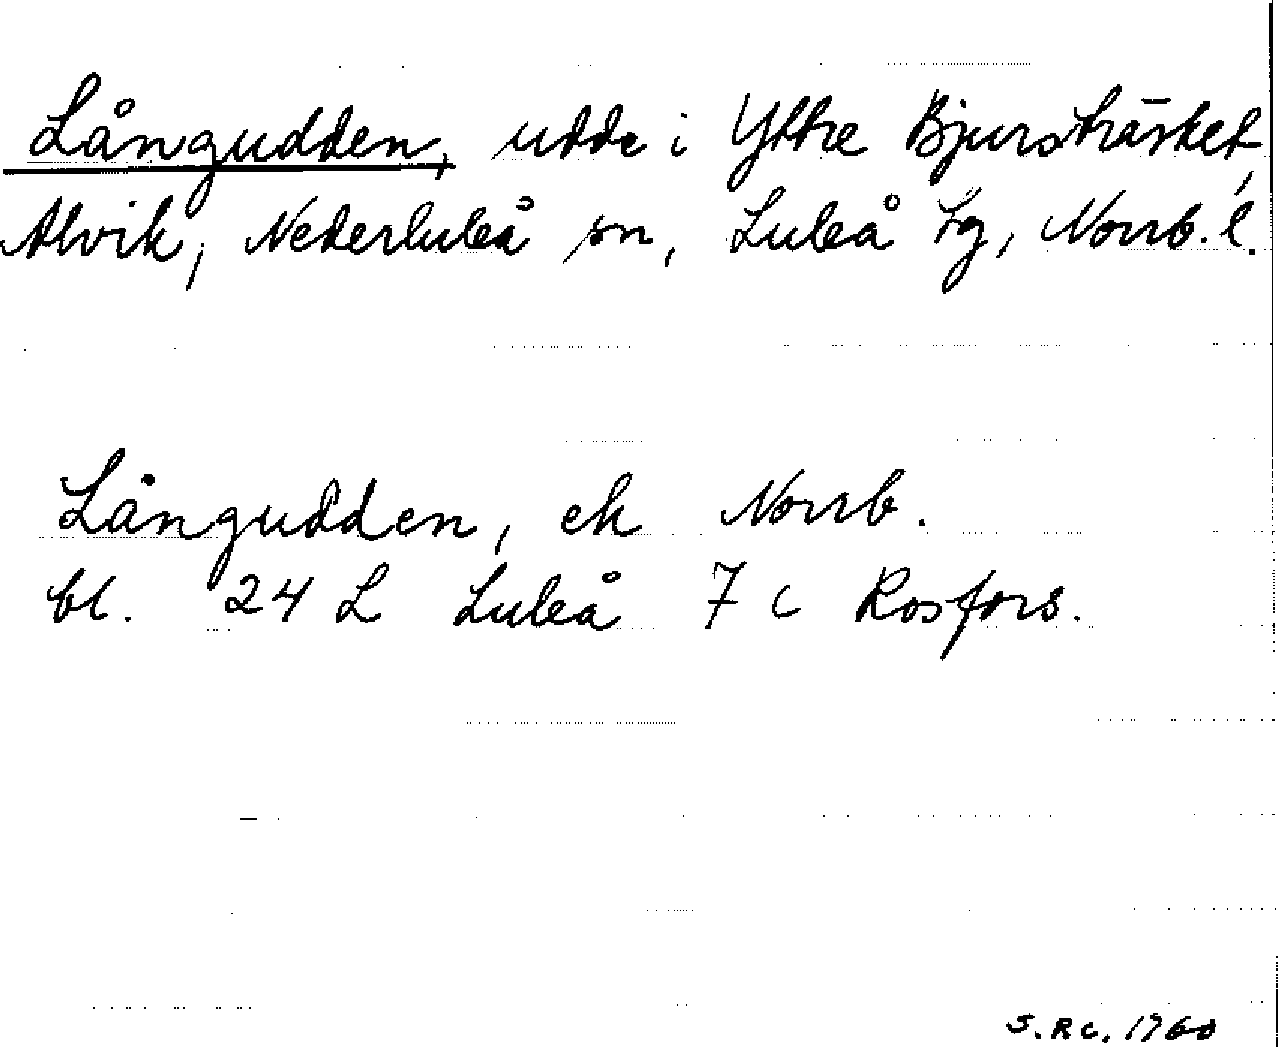 Långudden, udde i Yttre Bjursträsket,
Alvik, Nederluleå sn, Luleå tg, Norrb. l.
Långudden, ek Norrb.
bl. 24 L Luleå 7 c Rosfors.
S. RC. 1960